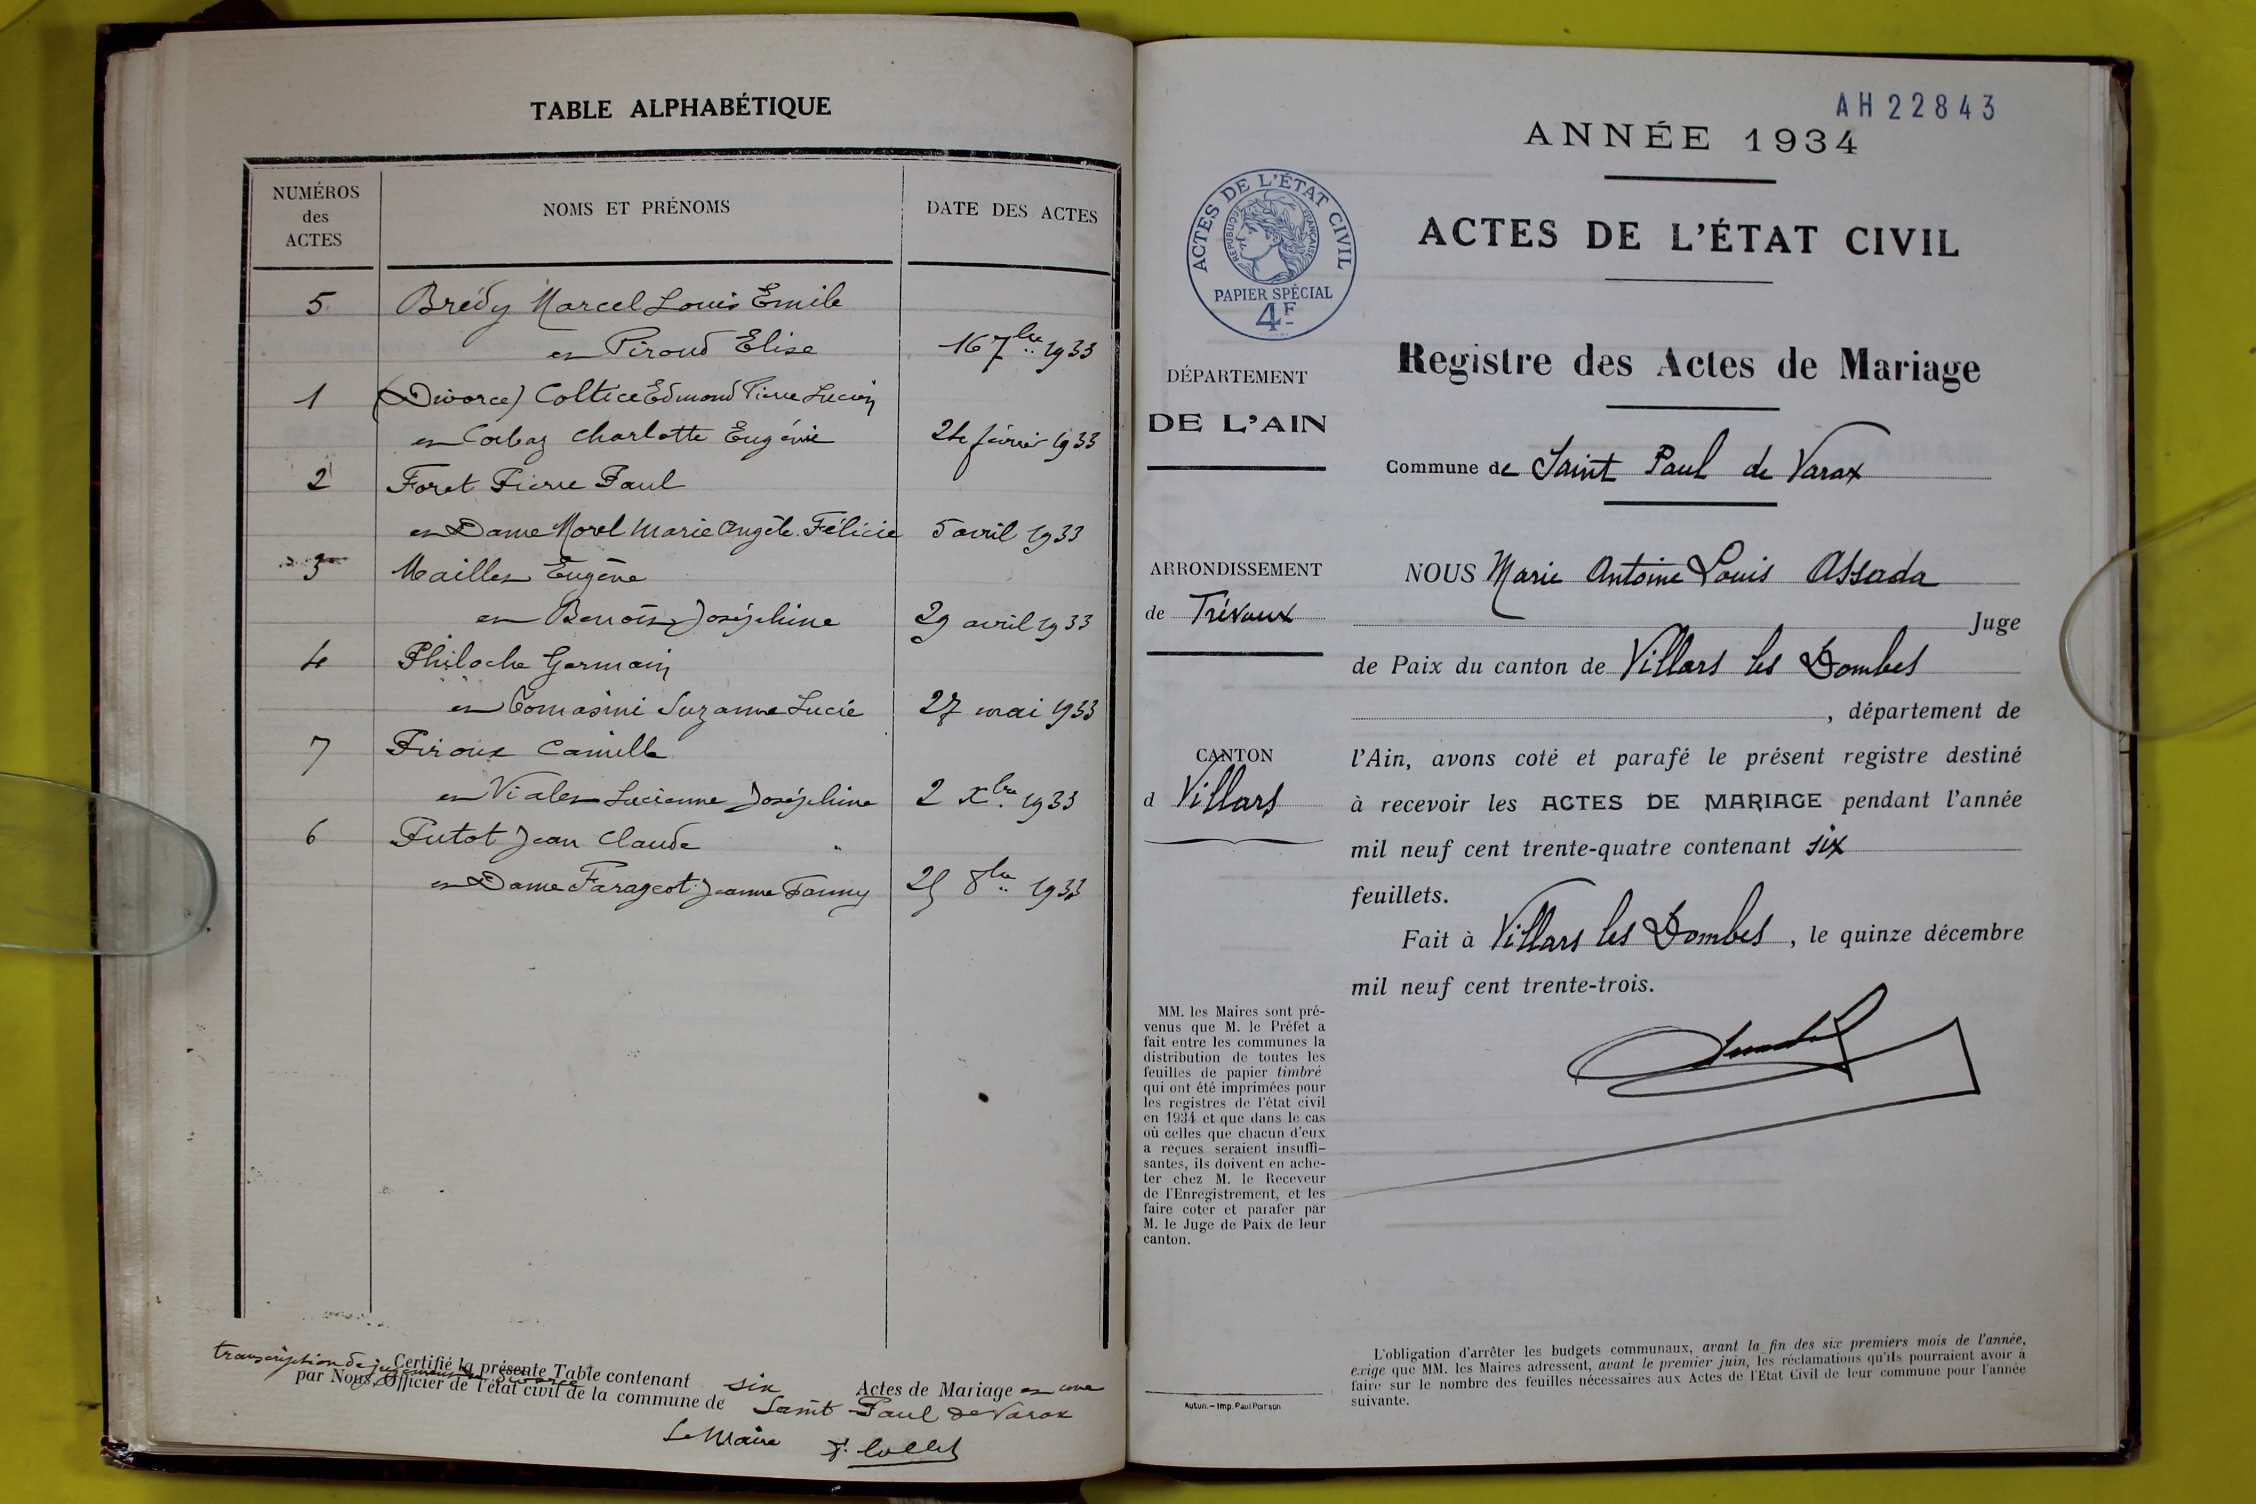 TABLE ALPHABÉTIQUE
NUMÉROS
des
ACTES
NOMS ET PRÉNOMS
DATE DES ACTES
5 Brédy Marcel Louis Emile
et Piroud Elise 16 7bre 1933
1 (Divorce) Coltice Edmond Pierre Lucien
et Corbaz Charlotte Eugénie 24 février 1933
2 Foret Pierre Paul
et Dame Morel Marie Angèle Félicie 5 avril 1933
3 Maillet Eugène
et Benoit Joséphine 29 avril 1933
4 Philoche Germain
et Tomasini Suzanne Lucie 27 mai 1933
7 Piroux Camille
et Vialet Lucienne Joséphine 2 Xbre 1933
6 Putot Jean Claude
et Dame Farageot Jeanne Fanny 25 8bre 1933
Certifié la présente Table contenant six Actes de Mariage et une
transcription de jugement de divorce
par Nous, Officier de l'état civil de la commune de Saint Paul de Varax
Le Maire
AH22843
ANNÉE 1934
ACTES DE L'ÉTAT CIVIL
RÉPUBLIQUE FRANÇAISE
PAPIER SPÉCIAL
4F
ACTES DE L'ÉTAT CIVIL
Registre des Actes de Mariage
DÉPARTEMENT
DE L'AIN
Commune de Saint Paul de Varax
ARRONDISSEMENT
de Trévoux
CANTON
d Villars
NOUS Marie Antoine Louis Assada
Juge
de Paix du canton de Villars les Dombes
, département de
l'Ain, avons coté et parafé le présent registre destiné
à recevoir les ACTES DE MARIAGE pendant l'année
mil neuf cent trente-quatre contenant six
feuillets.
Fait à Villars les Dombes, le quinze décembre
mil neuf cent trente-trois.
MM. les Maires sont pré-
venus que M. le Préfet a
fait entre les communes la
distribution de toutes les
feuilles de papier timbré
qui ont été imprimées pour
les registres de l'état civil
en 1934 et que dans le cas
où celles que chacun d'eux
a reçues seraient insuffi-
santes, ils doivent en ache-
ter chez M. le Receveur
de l'Enregistrement, et les
faire coter et parafer par
M. le Juge de Paix de leur
canton.
Autun. – Imp. Paul Poirson
L'obligation d'arrêter les budgets communaux, avant la fin des six premiers mois de l'année,
exige que MM. les Maires adressent, avant le premier juin, les réclamations qu'ils pourraient avoir à
faire sur le nombre des feuilles nécessaires aux Actes de l'Etat Civil de leur commune pour l'année
suivante.